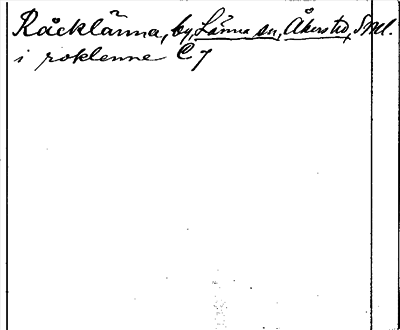 Råcklänna, by, Länna sn, Åkers hd, Sml.
i roklenne C 7